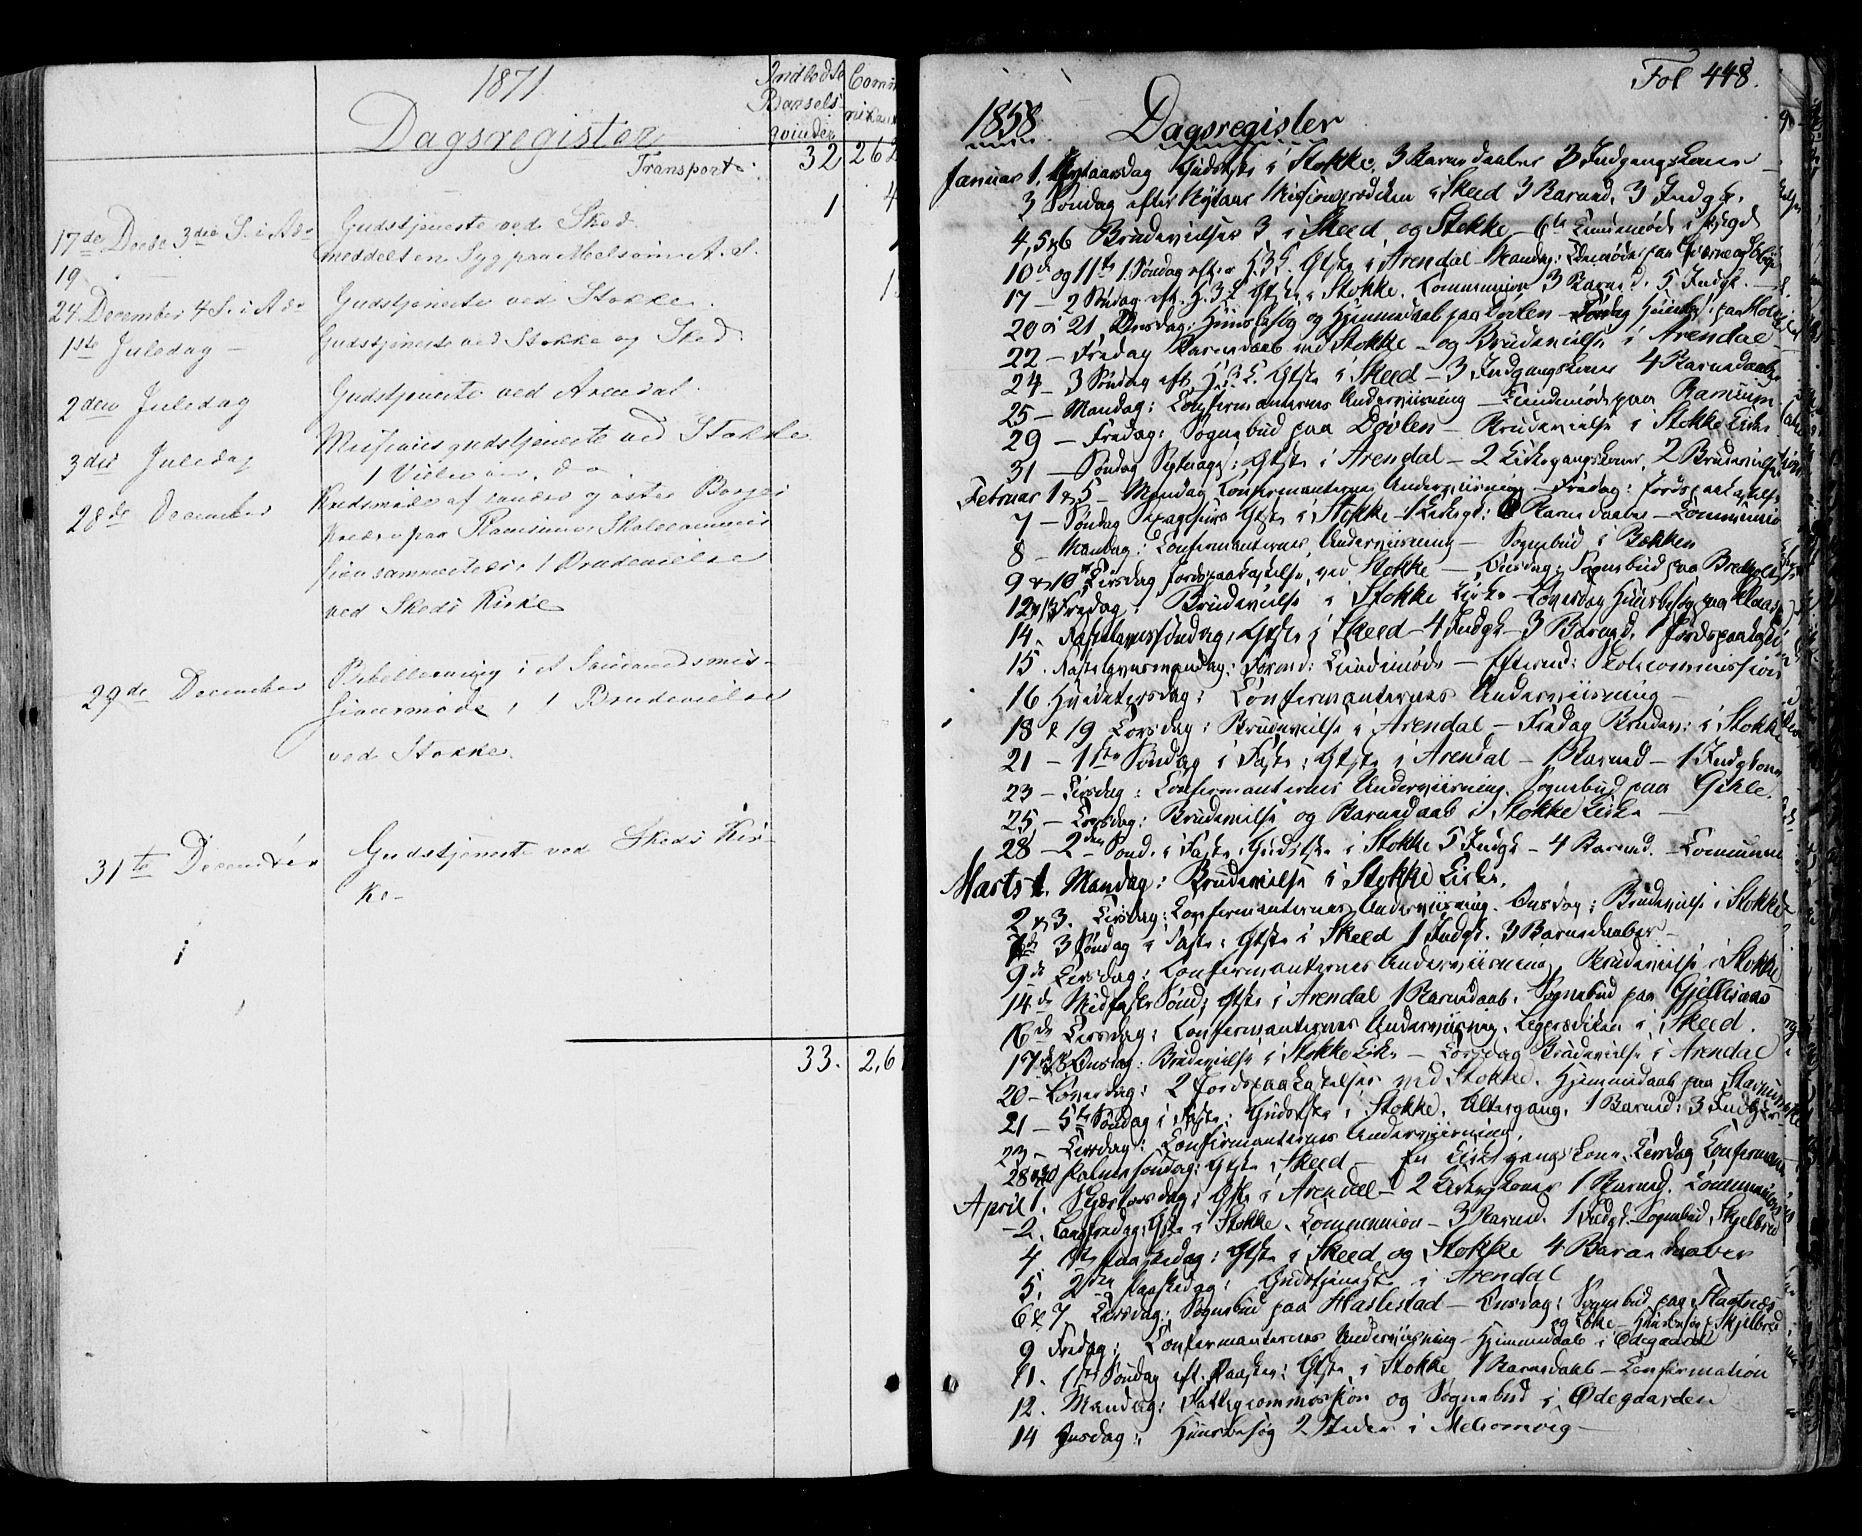 1871
Dagsregister
Indledte Barsels qvinder
Transport: 32 262
17de Decbr 3die S. i Adv. Gudstjeneste ved Sked. 1 4
19 meddelt en Syg paa Melsom A. S.
24 December 4 S. i Adv Gudstjeneste ved Stokke.
1ste Juledag – Gudstjeneste ved Stokke og Sked
2den Juledag Gudstjeneste ved Arendal.
3die Juledag Missionsgudstjeneste ved Stokke
1 Vielse do
28de December Kredsmøde af søndre og østre Borge
Kreds paa Ramsum Skolecommis
sion sammentræde 1 Brudevielse
ved Skeds Kirke
29de December Bibellæsning i et Formandsmis-
sionsmøde, 1 Brudevielse
ved Stokke.
31te December Gudstjeneste ved Skeds Kir-
ke-
33. 2,6
Fol 448.
1858. Dagsregister
Januar 1. Nytaarsdag Gudstjste i Stokke. 3 Barnedaaber 3 Indgangskoner
3 Søndag efter Nytaar Missionsprædiken i Skeed 3 Barned. 3 Indgk.
4, 5 & 6 Brudevielser 3 i Skeed og Stokke – 6te
10de og 11te 1 Søndag eft. H.3K. Gtjste i Arendal Mandag:
17 – 2 Søndag eft. H.3K Gtjste i Stokke. Communion 3 Barned. 5 Indgk.
20 & 21 Onsdag: Huusbesøg og Hjemmedaab paa Døvlen –
22 – Fredag Barnedaab ved Stokke – og Brudevielse i Arendal
24 – 3 Søndag eft. H.3.K. Gtjste i Skeed – 3 Indgangskoner 4 Barnedaaber
25 – Mandag: Confirmanternes Underviisning – paa Ramsum
29 – Fredag: Sognebud paa Døvlen – Brudevielse i Stokke Kirke
31 – Søndag Septuages: Gtjste i Arendal – 2 Kirkegangskoner, 2 Brudevielser
Februar 1 & 5 – Mandag Confirmanternes Underviisning – Fredag: Jordspaakastelse
7 – Søndag Sexagesima Gtjste i Stokke – 1 Kirkegk: Barnedaaber – Communio
8 – Mandag: Confirmanternes Underviisning – Sognebud i Bækken
9 & 10 Tirsdag Jordspaakastelse ved Stokke – Onsdag: Sognebud paa
12 & 13 Fredag: Brudevielse i Stokke Kirke – Løverdag Huusbesøg paa
14. Fastelavnssøndag, Gtjste i Skeed – 4 Indgk – 3 Barned. 1 Jordspaak
15. Fastelavnsmandag: Formd: – Efterm: Skolecommission
16 Hvidetirsdag: Confirmanternes Underviisning –
18 & 19 Torsdag: Brudevielse i Arendal – Fredag Brudev: i Stokke
21 – 1ste Søndag i Faste: Gtjste i Arendal – 1 Barned – 1 Indgkone
23 – Tirsdag: Confirmanternes Underviisning. Sognebud paa Gihle.
25 – Torsdag: Brudevielse og Barnedaab i Stokke Kirke –
28 – 2den Sønd. i Faste: Gudstjste i Stokke 5 Indgk – 4 Barned. – Communion
Marts 1. Mandag: Brudevielse i Stokke Kirke.
2 & 3. Tirsdag: Confirmanternes Underviisning. Onsdag: Brudevielse i Stokke
7de 3 Søndag i Faste: Gtjste i Skeed 1 Indgk. 3 Barnedaaber –
9de Tirsdag: Confirmanternes Underviisning, Brudevielse i Stokke
14de Midfaste Sønd: Gtjste i Arendal 1 Barnedaab. Sognebud paa Gjellisaas
16de Tirsdag: Confirmanternes Underviisning. Lægprædiken i Skeed.
17 & 18 Onsdag: Brudevielse i Stokke Kirke – Torsdag Brudevielse i Arendal
20 – Løverdag: 2 Jordspaakastelser ved Stokke. Hjemmedaab paa
21 – 5te Søndag i Faste: Gudstjste i Stokke. Altergang. 1 Barned: 3 Indgk
23 – Tirsdag: Confirmanternes Underviisning.
28 & 30 Palmesøndag: Gtjste i Skeed – En Kirkegangskone. Tirsdag Confirman
April 1. Skjærtorsdag: Gtjste i Arendal – 2 Kirkegkoner 1 Barned. Communion
2. Langfredag: Gtjste i Stokke. Communion – 3 Barned. 1 Indgk. – Sognebud Skjelbred
4. 1ste Paaskedag: Gtjste i Skeed og Stokke 4 Barnedaaber
5. 2den Paaskedag: Gudstjeneste i Arendal
6 & 7. Tirsdag: Sognebud paa Haslestad – Onsdag: Sognebud paa Slagtnæs
og – Huusbesøg Skjelbred
9 Fredag: Confirmanternes Underviisning – Hjemmedaab i Ødegaarden
11. 1ste Søndag eft. Paaske: Gtjste i Stokke 1 Barnedaab – Confirmation
12. Mandag: Fattigcommission og Sognebud i Ødegaarden
14 Onsdag: Huusbesøg 2 Steder i Melsomvig –